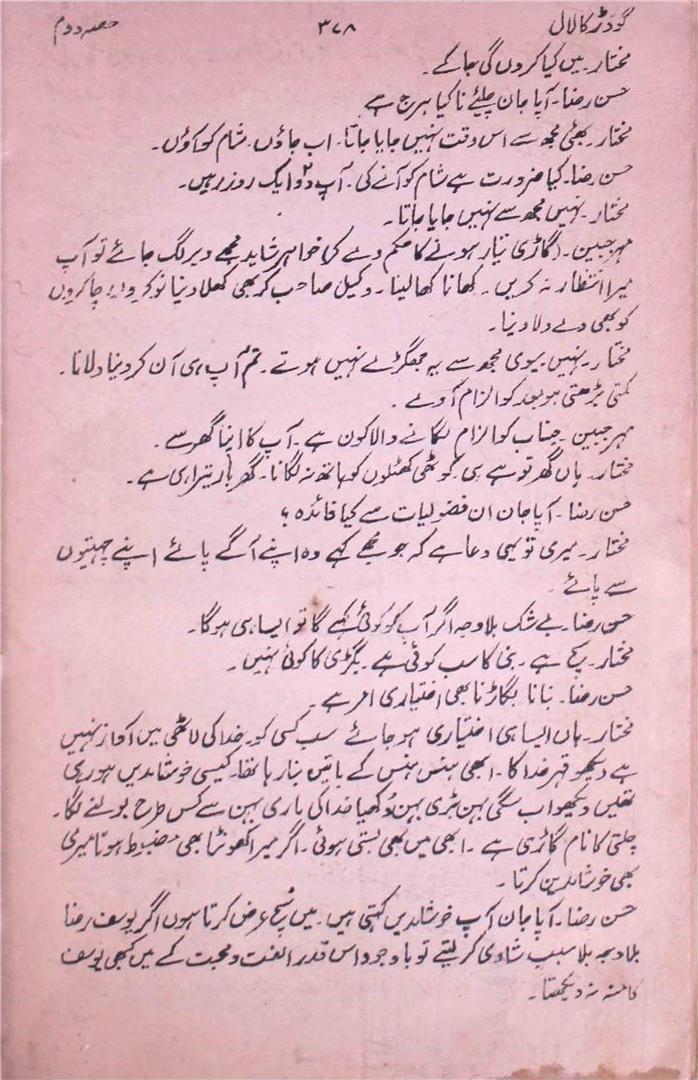 گودڑ کا لال ۳۷۸ حصہ دوم
مختار۔ میں کیا کروں گی جا کے۔
حسن رضا۔ آپا جان چلیئے نا کیا ہرج ہے
مختار۔ بھئی مجھ سے اس وقت نہیں جایا جاتا۔ اب جاؤں۔ شام کو آؤں۔
حسن رضا۔ کیا ضرورت ہے شام کو آنے کی۔ آپ دو ایک روز رہیں۔
مختار۔ نہیں مجھ سے نہیں جایا جاتا۔
مہر جبین۔ (گاڑی تیار ہونے کا حکم دے کر) خواہر شاید مجھے دیر لگ جائے تو آپ
میرا انتظار نہ کریں۔ کھانا کھا لینا۔ وکیل صاحب کو بھی کھلا دینا نوکروں چاکروں
کو بھی دے دلا دینا۔
مختار۔ نہیں بیوی مجھ سے یہ جھگڑے نہیں ہوتے۔ تم آپ ہی آن کر دینا دلانا۔
کمتی بڑھتی ہو بعد کو الزام آوے۔
مہر جبین۔ جناب کو الزام لگانے والا کون ہے۔ آپ کا اپنا گھر ہے۔
مختار۔ ہاں گھر تو ہے ہی کوٹھی کٹھلوں کو ہاتھ نہ لگانا۔ گھر بار تیرا ہی ہے۔
حسن رضا۔ آپا جان ان فضولیات سے کیا فائدہ؟
مختار۔ میری تو یہی دعا ہے کہ جو مجھے کہے وہ اپنے آگے پائے اپنے چہیتوں
سے پائے۔
حسن رضا۔ بے شک بلا وجہ اگر آپ کو کوئی کہے گا تو ایسا ہی ہو گا۔
مختار۔ سچ ہے۔ بنی کا سب کوئی ہے۔ بگڑی کا کوئی نہیں۔
حسن رضا۔ بنانا بگاڑنا بھی اختیاری امر ہے۔
مختار۔ ہاں ایسا ہی اختیاری ہو جائے سب کسی کو۔ خدا کی لاٹھی میں آواز نہیں
ہے دیکھو قہر خدا کا۔ ابھی ہنس ہنس کے باتیں بنا رہا تھا۔ کیسی خوشامدیں ہو رہی
تھیں دیکھو اب سگی بہن بُری بہن دُکھیا خدا کی ماری بہن سے کس طرح بولنے لگا۔
چلتی کا نام گاڑی ہے۔ ابھی میں بھی بستی ہوئی۔ اگر میرا کھونٹا بھی مضبوط ہوتا میری
بھی خوشامدیں کرتا۔
حسن رضا۔ آپا جان آپ خوشامدیں کہتی ہیں۔ میں سچ عرض کرتا ہوں اگر یوسف رضا
بلا وجہ بلا سبب شادی کر لیتے تو باوجود اس قدر الفت و محبت کے میں کبھی یوسف
کا منہ نہ دیکھتا۔